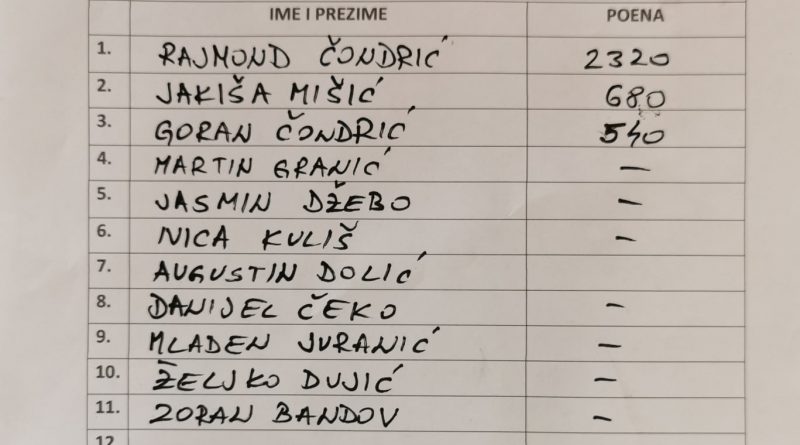 IME I PREZIME POENA
1. RAJMOND ČONDRIĆ 2320
2. JAKIŠA MIŠIĆ 680
3. GORAN ČONDRIĆ 540
4. MARTIN GRANIĆ —
5. JASMIN DŽEBO —
6. NICA KULIŠ —
7. AUGUSTIN DOLIĆ
8. DANIJEL ČEKO —
9. MLADEN JURANIĆ —
10. ŽELJKO DUJIĆ —
11. ZORAN BANDOV —
12